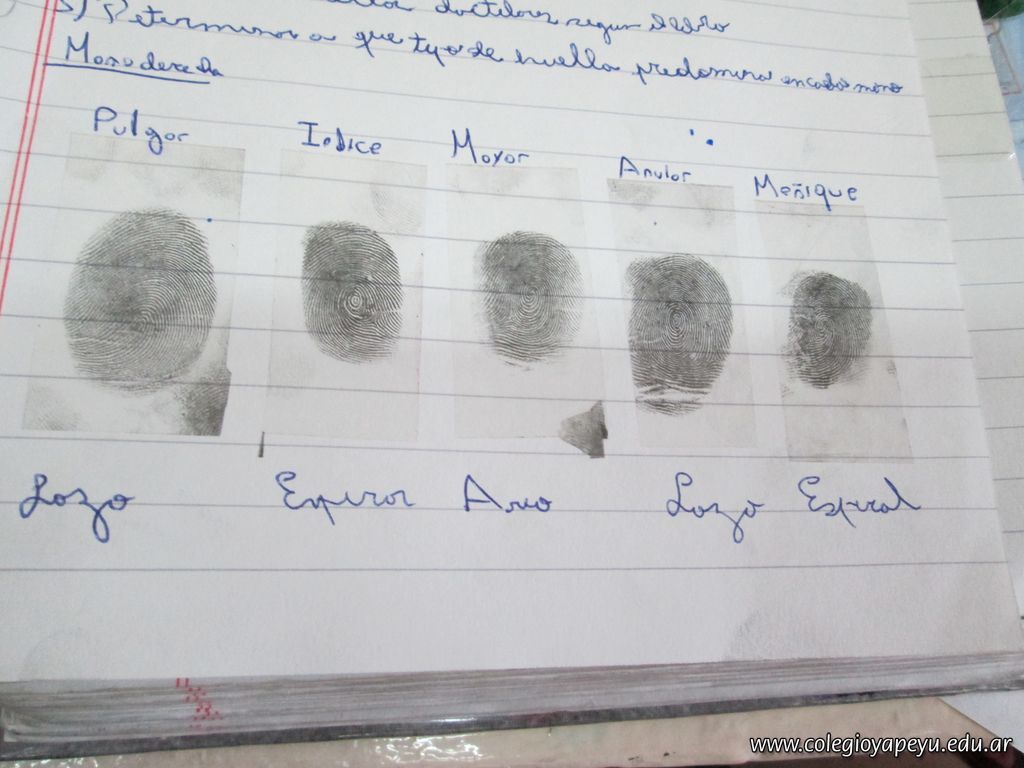 dactilares según dedo
5) Determinar a que tipo de huella predomina en cada mano
Mano derecha
Pulgar Indice Mayor Anular Meñique
Lazo Espiral Arco Lazo Espiral
www.colegioyapeyu.edu.ar